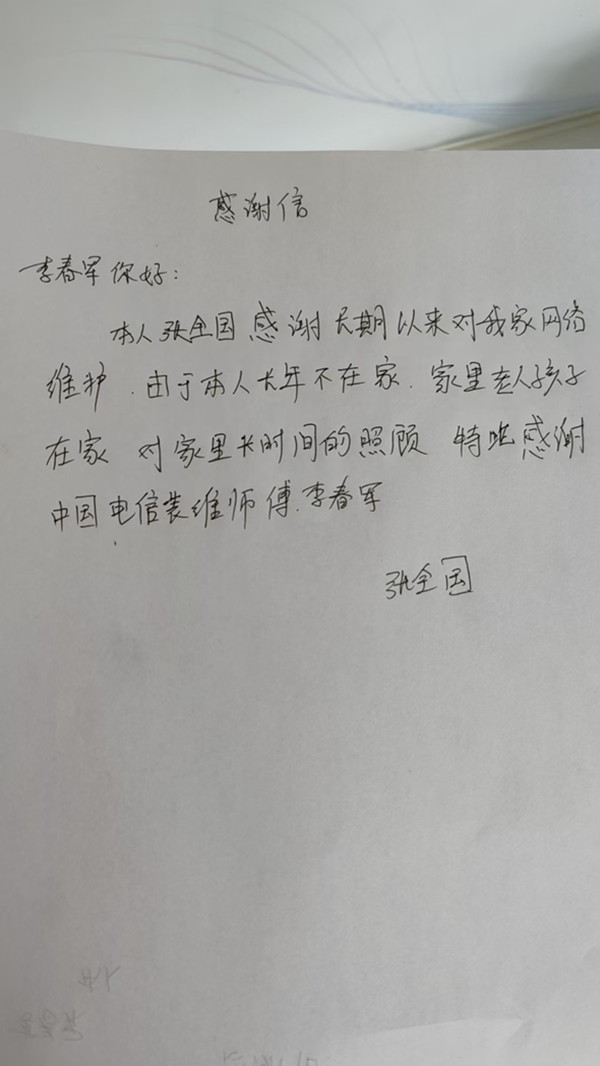 感谢信
李春军你好：
本人张全国感谢长期以来对我家网络
维护.由于本人长年不在家.家里老人孩子
在家 对家里长时间的照顾 特此感谢
中国电信装维师傅.李春军
张全国